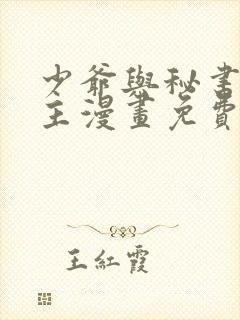 少爺與秘書
主漫畫免費
王紅霞